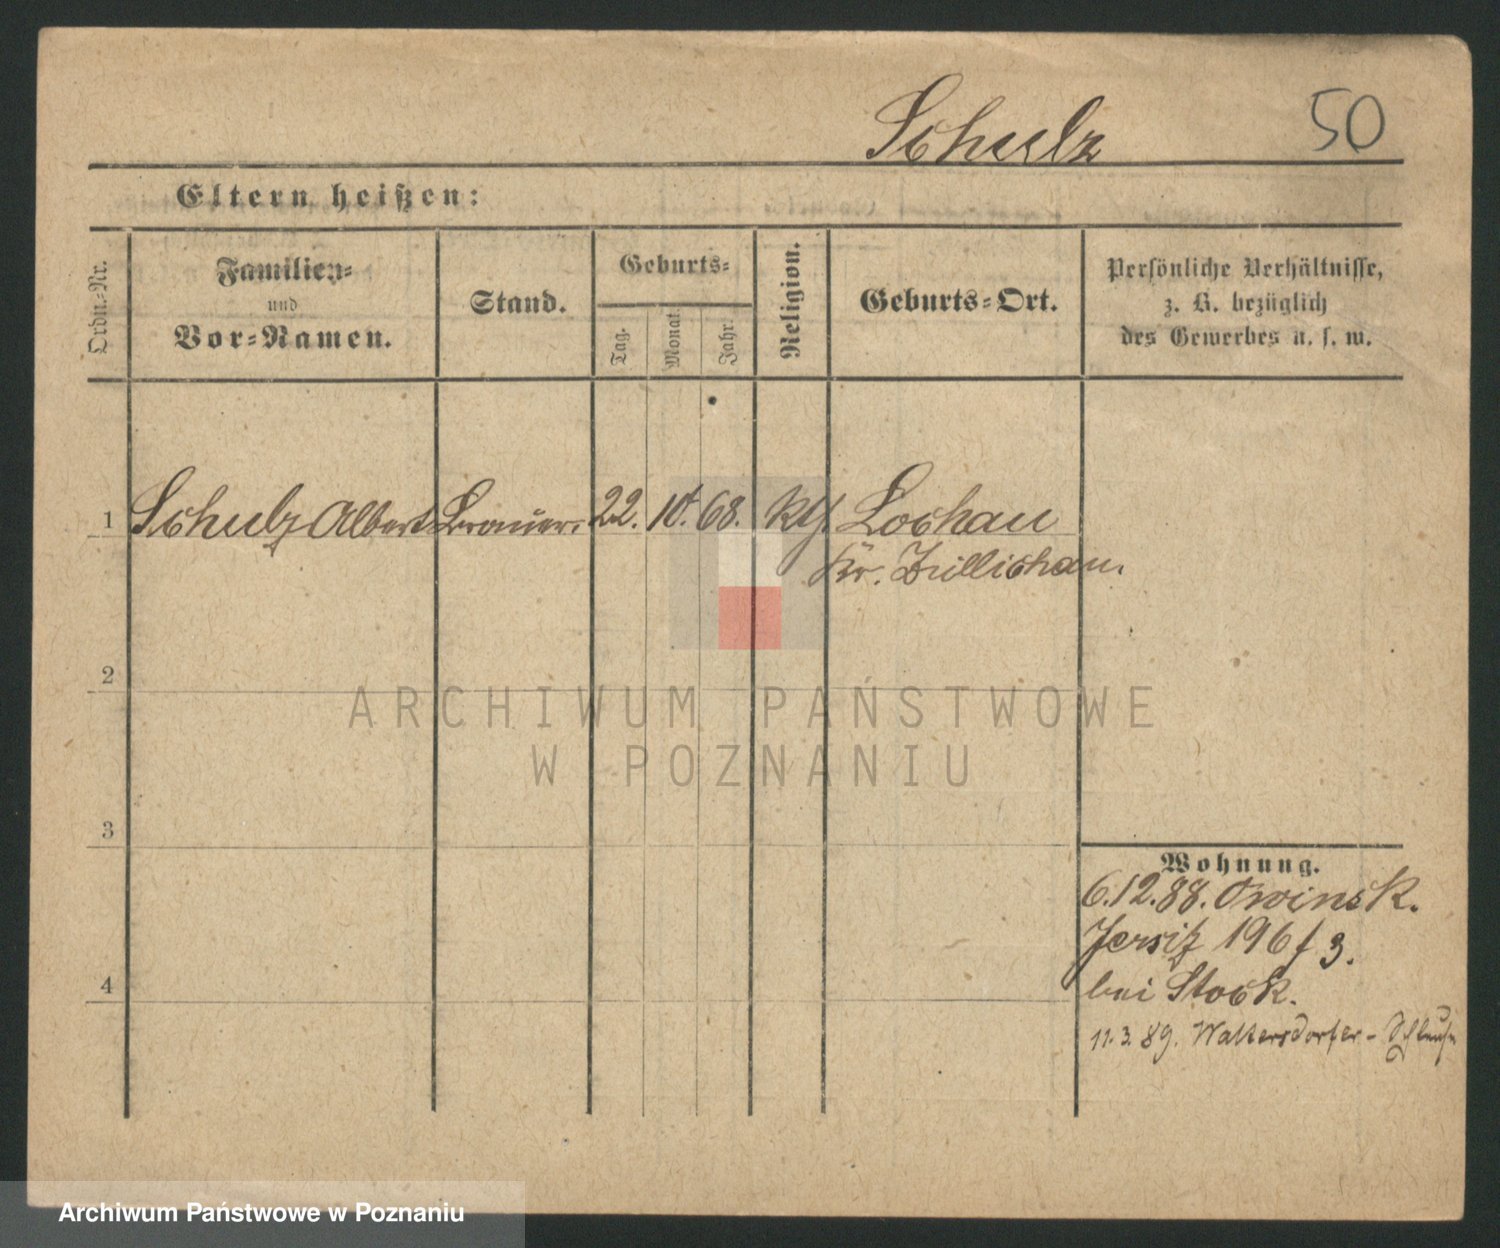 Schulz 50
Eltern heißen:
Ordn.-Nr.
Familien-
und
Vor-Namen.
Stand.
Geburts-
Tag.
Monat.
Jahr.
Religion.
Geburts-Ort.
Persönliche Verhältnisse,
z. B. bezüglich
des Gewerbes u. s. w.
1 Schulz Albert Brauer. 22. 10. 68. Lochau
Kr. Züllichau.
2
ARCHIWUM PAŃSTWOWE
W POZNANIU
3
Wohnung.
6.12.88. Owinsk.
Jersitz 196 f 3.
4 bei Stock.
11.3.89. Waltersdorfer-Schleuse
Archiwum Państwowe w Poznaniu